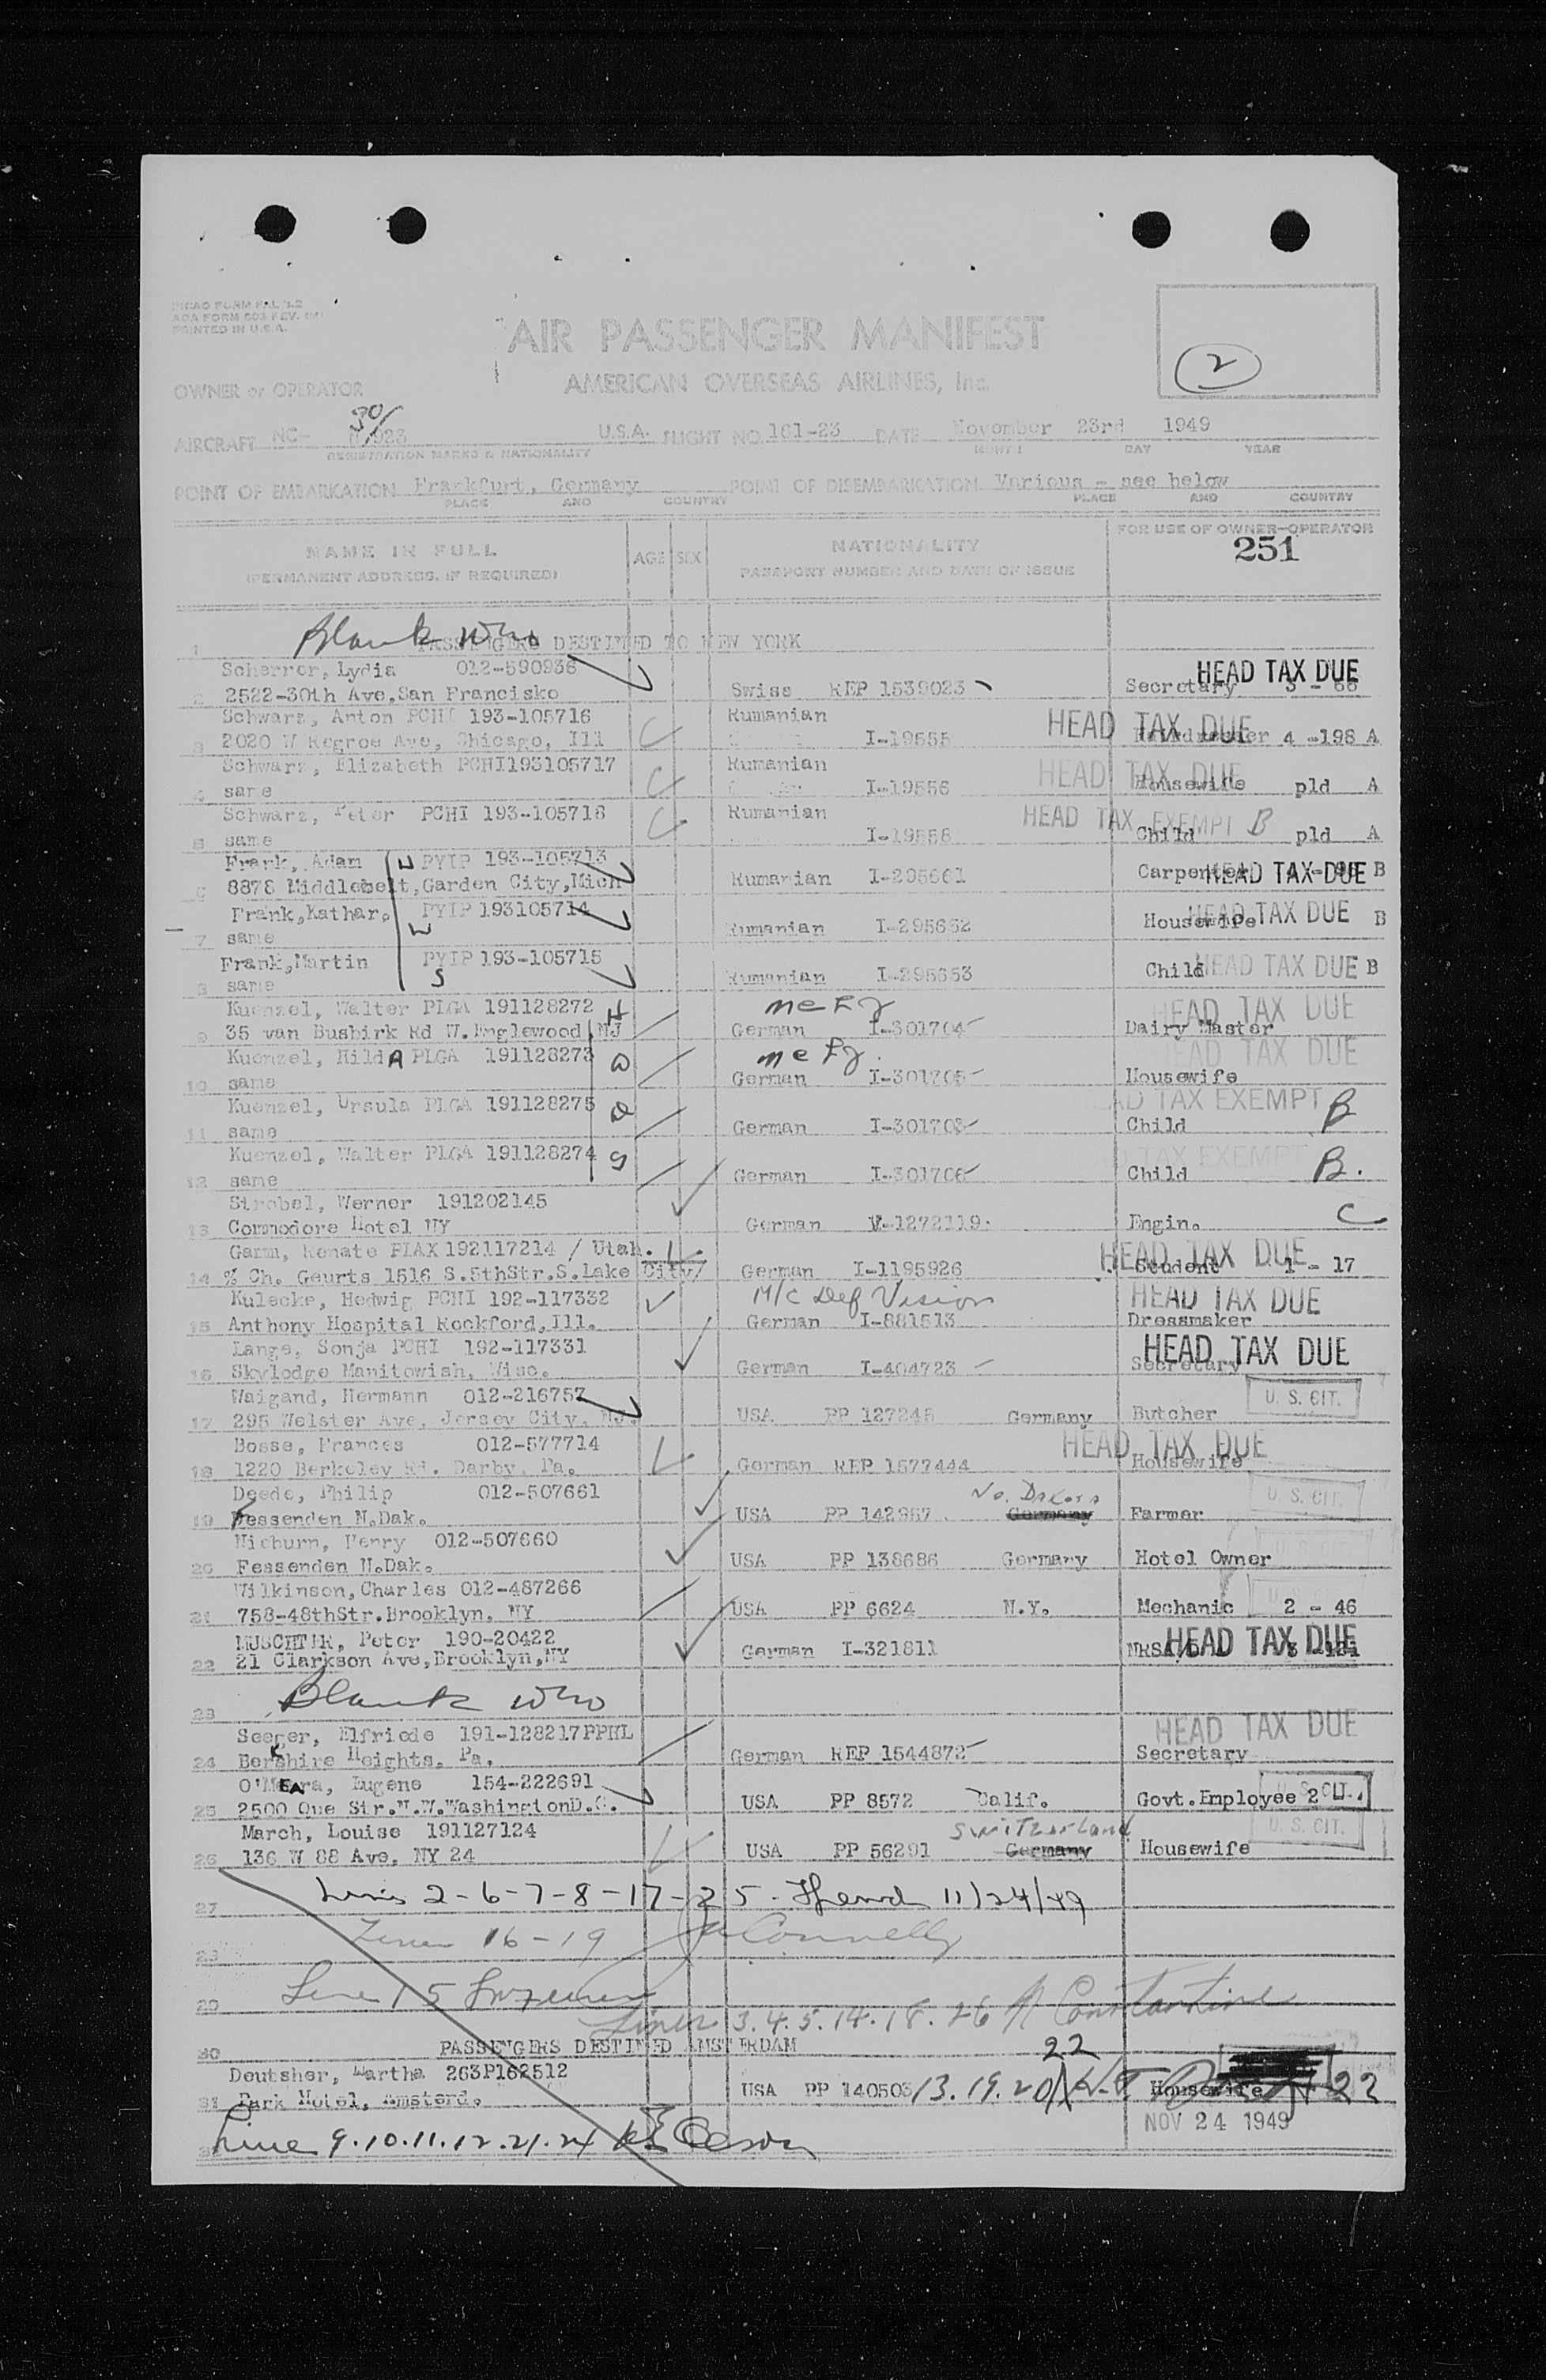 ICAO FORM FAL 3.2
PRINTED IN U.S.A.
AIR PASSENGER MANIFEST
2
AMERICAN OVERSEAS AIRLINES, Inc.
OWNER or OPERATOR
30/
AIRCRAFT NC- U.S.A. FLIGHT NO. 161-23 DATE November 23rd 1949
REGISTRATION MARKS & NATIONALITY MONTH DAY YEAR
POINT OF EMBARKATION Frankfurt, Germany POINT OF DISEMBARKATION Various - see below
PLACE AND COUNTRY PLACE AND COUNTRY
NAME IN FULL AGE SEX NATIONALITY FOR USE OF OWNER-OPERATOR
251
(PERMANENT ADDRESS, IF REQUIRED) PASSPORT NUMBER AND DATE OF ISSUE
Blank
1 PASSENGERS DESTINED TO NEW YORK
Scherrer, Lydia 012-590936 HEAD TAX DUE
2 2522-30th Ave,San Francisko Swiss REP 1539023 Secretary 3 - 66
Schwarz, Anton PCHI 193-105716 Rumanian HEAD TAX DUE
3 2020 W Regroe Ave, Chicago, Ill I-19555 4 -198 A
Schwarz, Elizabeth PCHI193105717 Rumanian HEAD TAX DUE
4 same I-19556 Housewife pld A
Schwarz, Peter PCHI 193-105718 Rumanian HEAD TAX EXEMPT B
5 same I-19558 Child pld A
Frank, Adam PYIP 193-105713 HEAD TAX DUE
6 8878 Middlebelt,Garden City,Mich Rumanian I-295661 Carpenter B
Frank,Kathar. PYIP 193105714 HEAD TAX DUE
7 same Rumanian I-295662 Housewife B
Frank,Martin PYIP 193-105715 HEAD TAX DUE
8 same S Rumanian I-295663 Child B
Kuenzel, Walter PLGA 191128272 H HEAD TAX DUE
9 35 van Busbirk Rd W.Englewood NJ German I-301704 Dairy Master
Kuenzel, HildA PLGA 191128273 HEAD TAX DUE
10 same German I-301705 Housewife
Kuenzel, Ursula PLGA 191128275 HEAD TAX EXEMPT B
11 same German I-301703 Child
Kuenzel, Walter PLGA 191128274 S HEAD TAX EXEMPT
12 same German I-301706 Child B.
Strobel, Werner 191202145
13 Commodore Hotel NY German V-1272119 Engin. C
Garm, Renate PIAX 192117214 / Utah. HEAD TAX DUE
14 % Ch. Geurts 1516 S.5thStr.S.Lake City/ German I-1195926 Student 1 - 17
Kulecke, Hedwig PCHI 192-117332 M/C Def Vision HEAD TAX DUE
15 Anthony Hospital Rockford,Ill. German I-881513 Dressmaker
Lange, Sonja PCHI 192-117331 HEAD TAX DUE
16 Skylodge Manitowish, Wisc. German I-404723 Secretary
Waigand, Hermann 012-216757 U.S. CIT.
17 295 Welster Ave, Jersey City, NJ. USA PP 127245 Germany Butcher
Bosse, Frances 012-577714 HEAD TAX DUE
18 1220 Berkeley Rd. Darby, Pa. German REP 1577444 Housewife
Deede, Philip 012-507661 No. Dakota U.S. CIT.
19 Fessenden N.Dak. USA PP 142957 Germany Farmer
Wichurn, Henry 012-507660 U.S. CIT.
20 Fessenden N.Dak. USA PP 138686 Germany Hotel Owner
Wilkinson,Charles 012-487266 U.S. CIT.
21 758-48thStr.Brooklyn, NY USA PP 6624 N.Y. Mechanic 2 - 46
MUSCHTER, Peter 190-20422 HEAD TAX DUE
22 21 Clarkson Ave,Brooklyn,NY German I-321811
Blank
23
Seeger, Elfriede 191-128217PPHL HEAD TAX DUE
24 Berkshire Heights, Pa. German REP 1544872 Secretary
O'MEAra, Eugene 154-222691 U.S. CIT.
25 2500 Que Str.N.W.WashingtonD.C. USA PP 8572 Calif. Govt.Employee 2
March, Louise 191127124 Switzerland U.S. CIT.
26 136 W 88 Ave, NY 24 USA PP 56291 Germany Housewife
27 Lines 2-6-7-8-17-25 - 11/24/49
28 Lines 16-19 Connelly
29 Line 15
Lines 3.4.5.14.18.26 Constantine
30 PASSENGERS DESTINED AMSTERDAM 22
Deutsher, Martha 263P162512
31 Park Hotel, Amsterd. USA PP 140503 13.19.20 Housewife 22
NOV 24 1949
32 Line 9.10.11.12.21.24